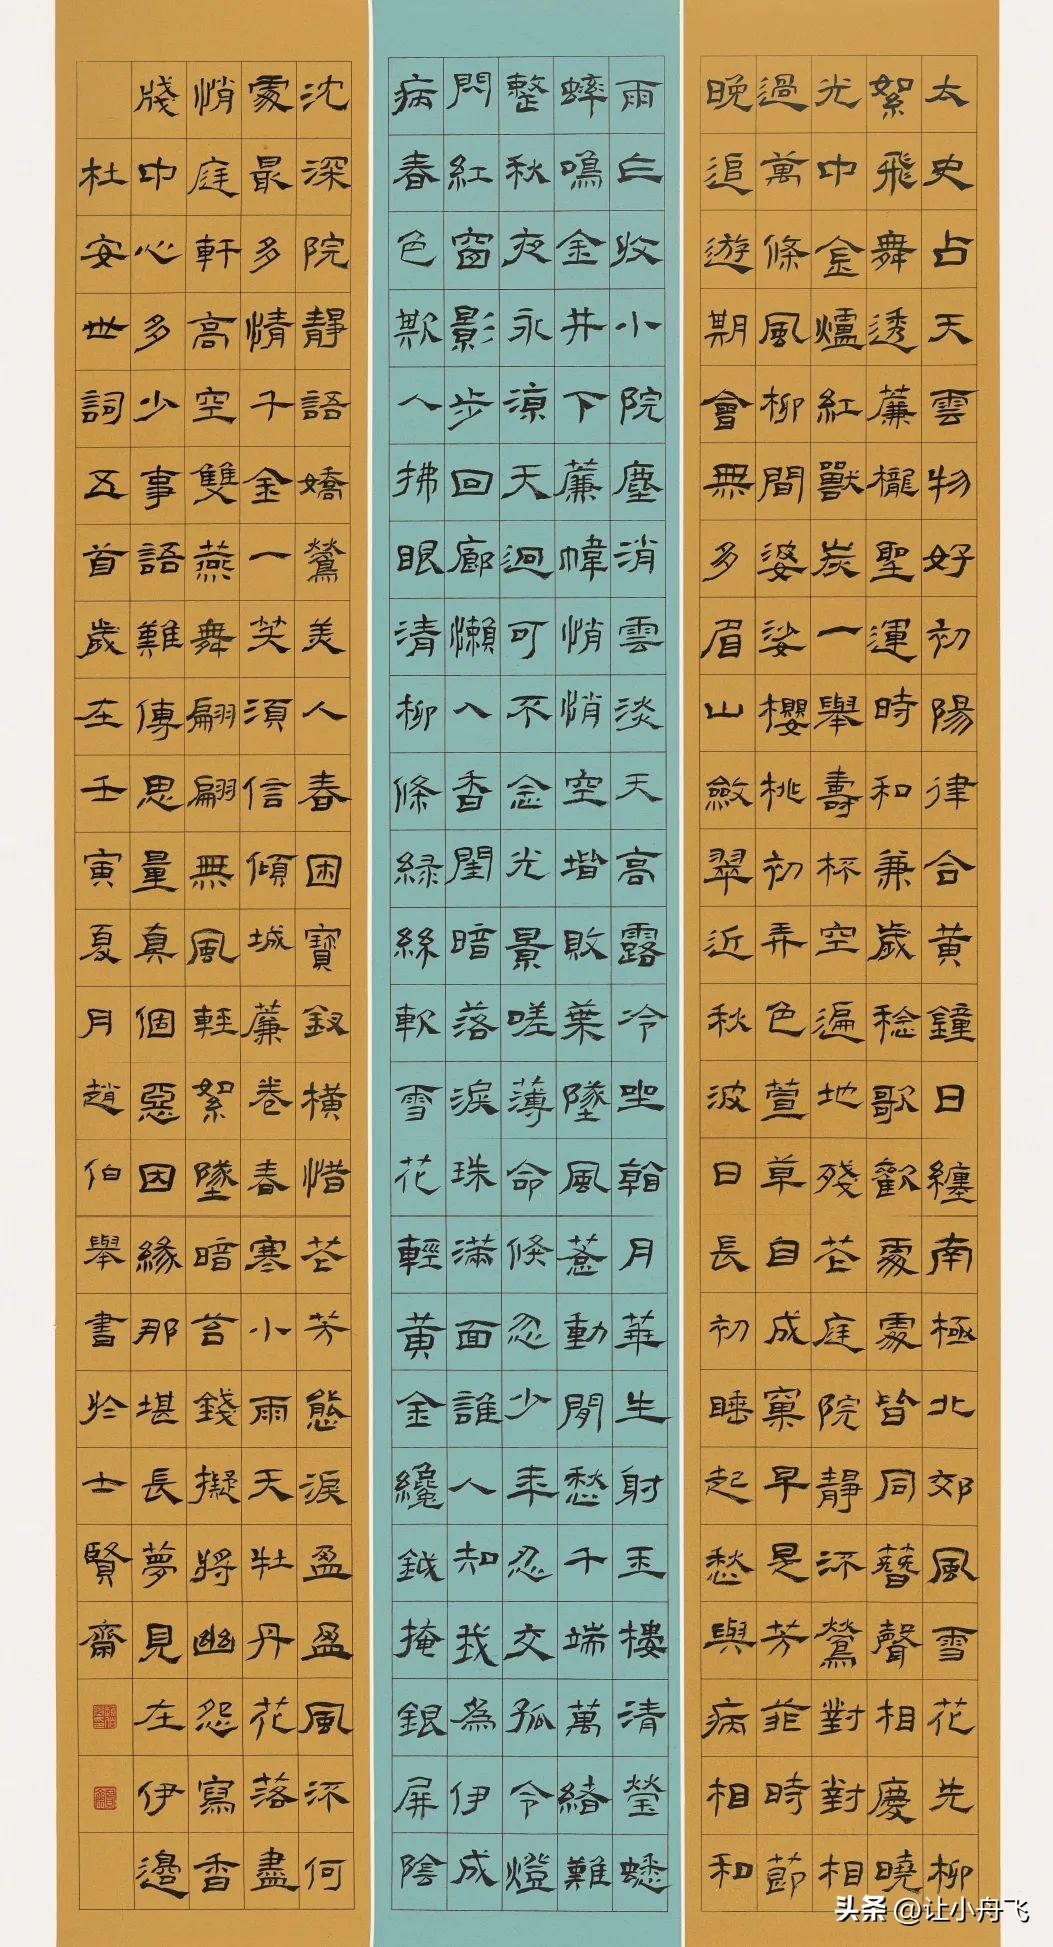 太史占天雲物好初陽律合黃鐘日纏南極北郊風雪花先柳
絮飛舞透簾櫳聖運時和兼歲稔歌歡處處皆同簪聲相慶曉
光中金爐紅獸炭一舉壽杯空遍地殘花庭院靜流鶯對對相
過萬條風柳間婆娑櫻桃初弄色萱草自成窠早是芳菲時節
晚追遊期會無多眉山斂翠近秋波日長初睡起愁與病相和
雨乍收小院塵消雲淡天高露冷坐看月華生射玉樓清瑩蟋
蟀鳴金井下簾幃悄悄空堦敗葉墜風惹動閒愁千端萬緒難
整秋夜永涼天迥可不念光景嗟薄命倏忽少年忍交孤令燈
閃紅窗影步回廊懶入香閨暗落淚珠滿面誰人知我為伊成
病春色欺人拂眼清柳條綠絲軟雪花輕黃金纔鉞掩銀屏陰
沈深院靜語嬌鶯美人春困寶釵橫惜花芳態淚盈盈風流何
處最多情千金一笑須信傾城簾卷春寒小雨天牡丹花落盡
悄庭軒高空雙燕舞翩翩無風輕絮墜暗苔錢擬將幽怨寫香
牋中心多少事語難傳思量真個惡因緣那堪長夢見在伊邊
杜安世詞五首歲在壬寅夏月趙伯舉書於士賢齋
头条 @让小舟飞